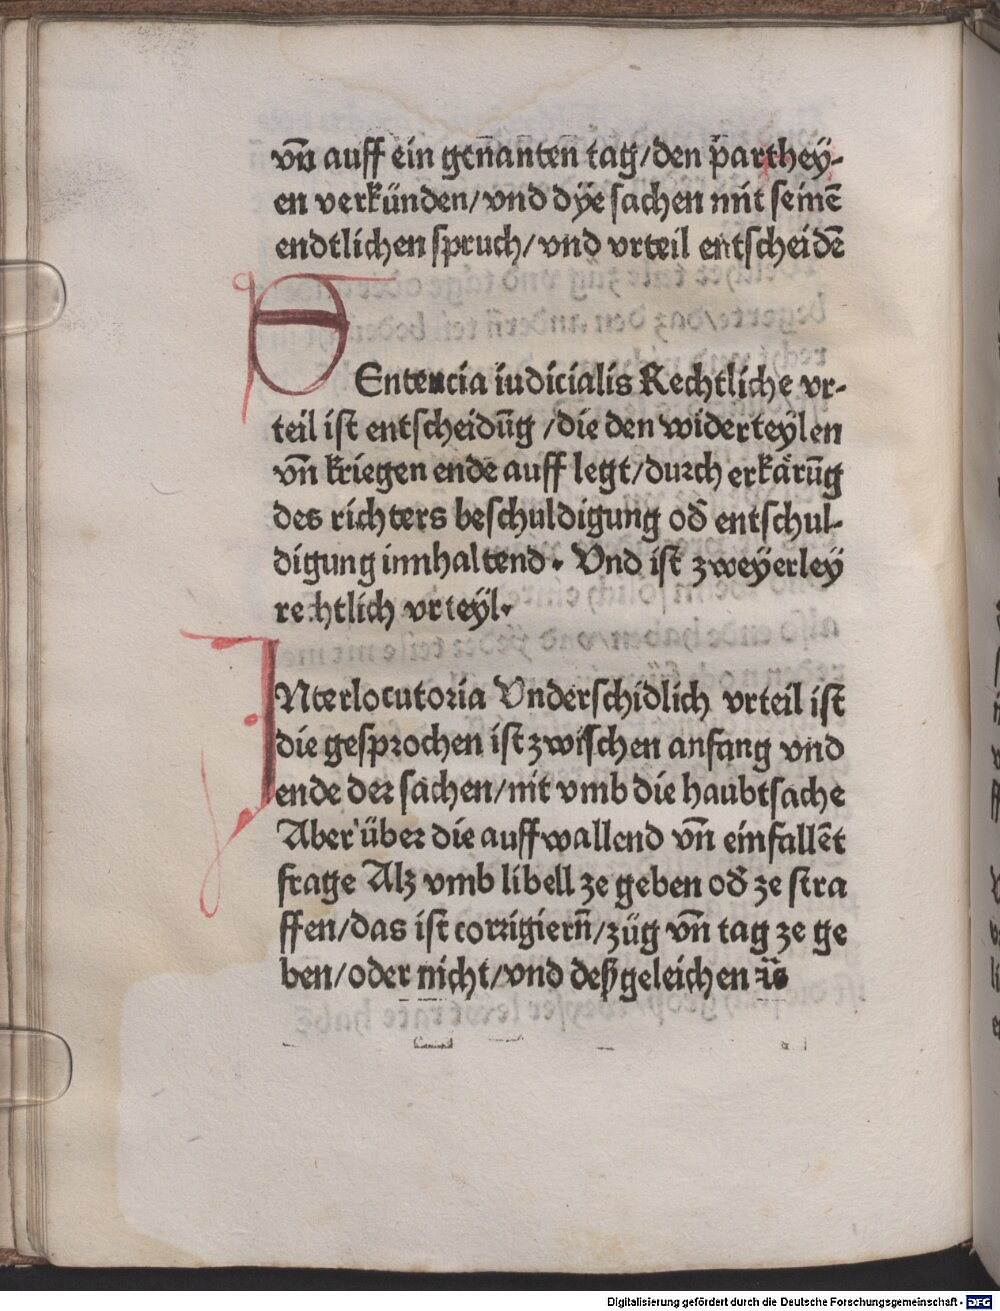 vn̄ auff ein gen̄anten̄ tag/den p̄arthey-
en verkünden/vnd dÿe sachen mit seinē
endtlichen spruch/vnd vrteil entscheidē
SEntencia iudicialis Rechtliche vr-
teil ist entscheidūg /die den widerteÿlen
vn̄ kriegen ende auff legt/durch erkärūg
des richters beschuldigung od̄ entschul-
digung innhaltend. Vnd ist zweÿerleÿ
rechtlich vrteÿl.
INterlocutoria Vnderschidlich vrteil ist
die gesprochen ist zwischen anfang vnd
ende der sachen/nit vmb die haubtsache
Aber über die auffwallend vn̄ einfallēt
frage Alz vmb libell ze geben od̄ ze stra
ffen/das ist corrigiern̄/züg vn̄ tag ze ge
ben/oder nicht/vnd deßgeleichen
Digitalisierung gefördert durch die Deutsche Forschungsgemeinschaft - DFG